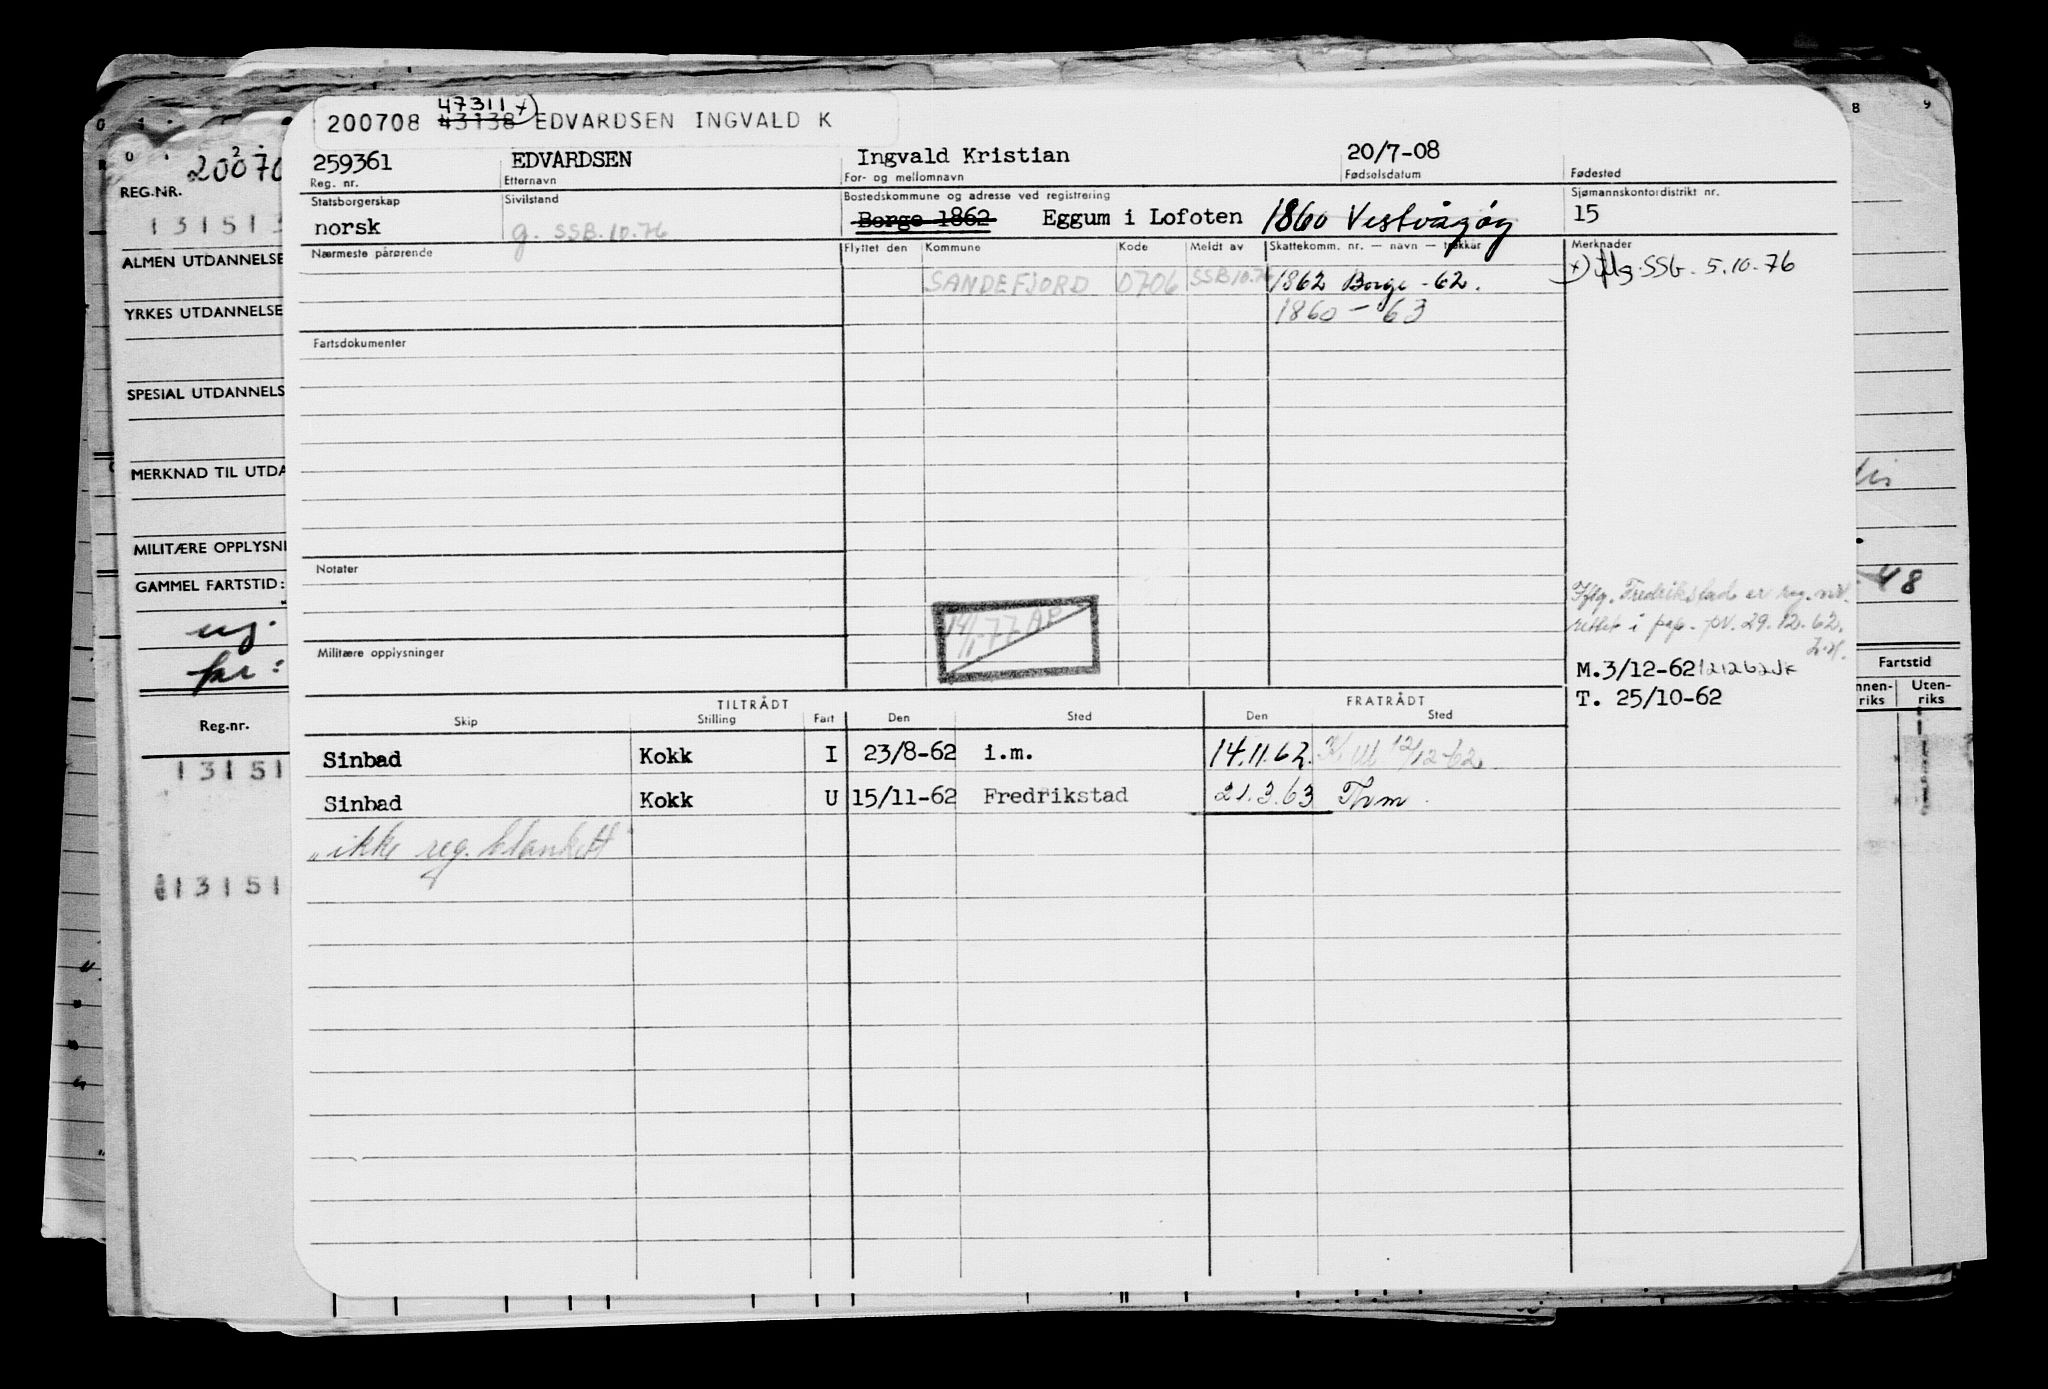 47311 x)
200708 43138 EDVARDSEN INGVALD K
259361 EDVARDSEN Ingvald Kristian 20/7-08
Reg. nr. Etternavn For- og mellomnavn Fødselsdatum Fødested
Statsborgerskap Sivilstand Bostedskommune og adresse ved registrering Sjømannskontordistrikt nr.
norsk g. SSB.10.76 Borge 1862 Eggum i Lofoten 1860 Vestvågøy 15
Nærmeste pårørende Flyttet den Kommune Kode Meldt av Skattekomm. nr. — navn — trekkår Merknader
SANDEFJORD 0706 SSB10.76 1862 Borge -62. x) flg. SSB. 5.10.76
1860 - 63
Fartsdokumenter
Notater
Iflg. Fredrikstad er reg. nr.
rettet i pap. pv. 29.12.62.
14/1-77 AP
Militære opplysninger
M.3/12-62 121262
T. 25/10-62
TILTRÅDT FRATRÅDT
Skip Stilling Fart Den Sted Den Sted
Sinbad Kokk I 23/8-62 i.m. 14.11.62. 12/12-62
Sinbad Kokk U 15/11-62 Fredrikstad 21.3.63 Thvm.
"ikke reg. blankett"
REG.NR. 20070
1 3 1 5 1 3
ALMEN UTDANNELSE
YRKES UTDANNELSE
SPESIAL UTDANNELS
MERKNAD TIL UTDA
MILITÆRE OPPLYSNI
GAMMEL FARTSTID:
Reg.nr.
1 3 1 5 1
1 3 1 5 1
8 9
48
Fartstid
nnen-
riks
Uten-
riks